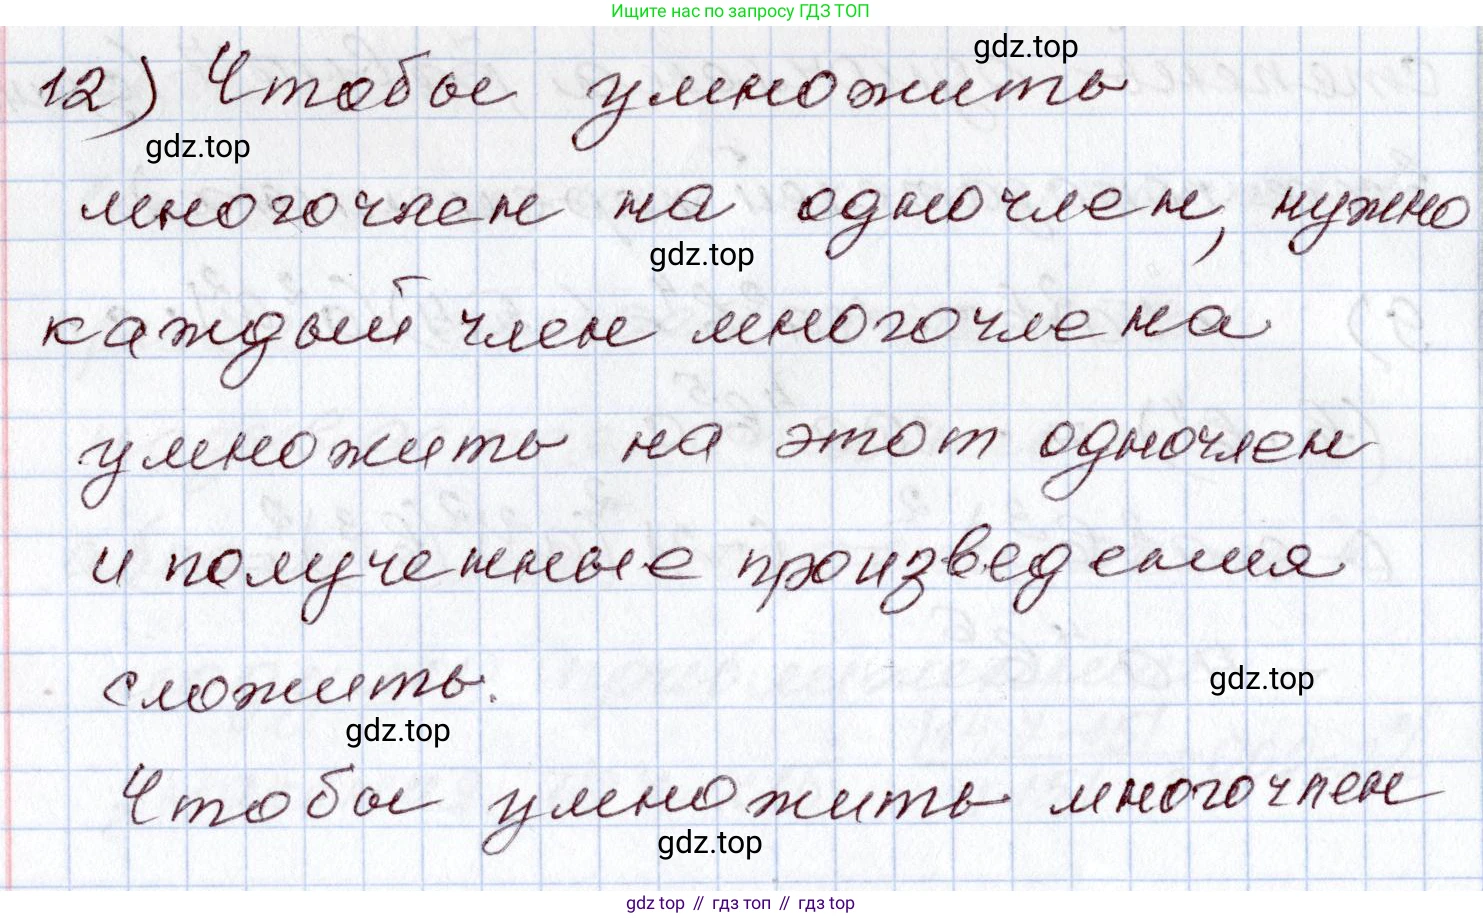 Ищите нас по запросу ГДЗ ТОП
gdz.top
12) Чтобы умножить
gdz.top
многочлен на одночлен, нужно
gdz.top
каждый член многочлена
умножить на этот одночлен
и полученные произведения
gdz.top
сложить.
gdz.top
Чтобы умножить многочлен
gdz.top
gdz.top // гдз топ // гдз top